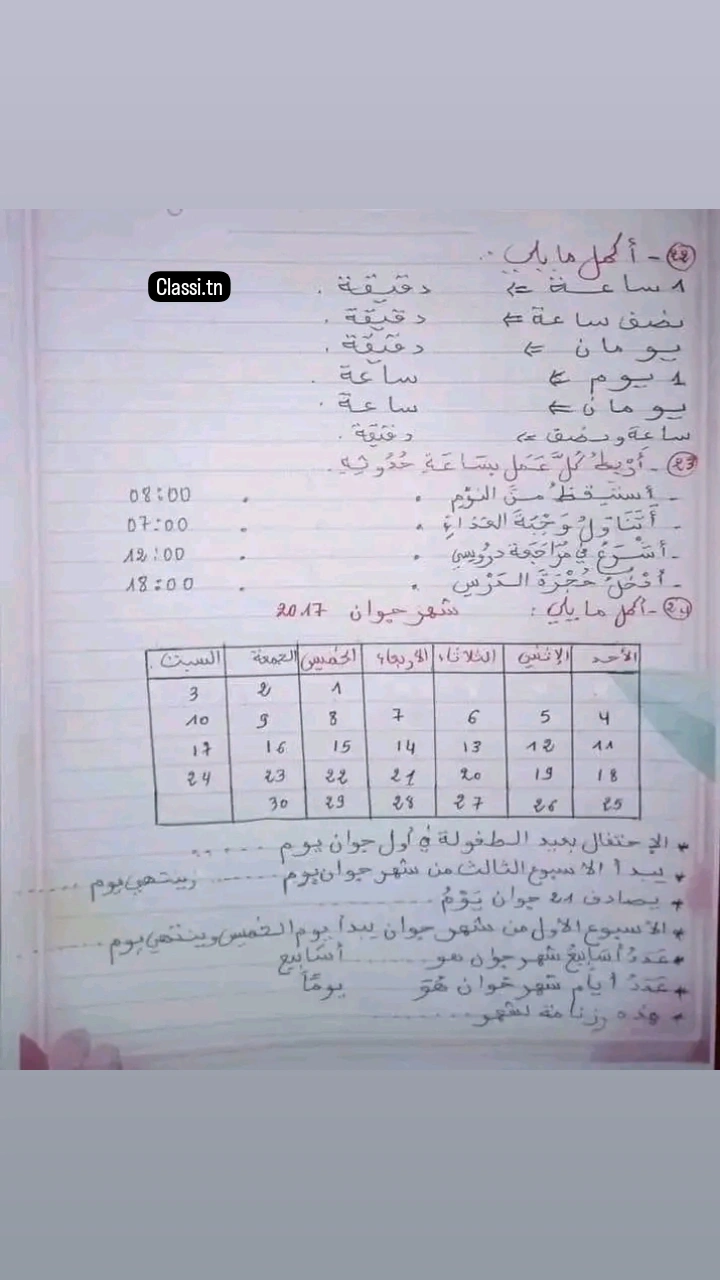 Classi.tn
22 - أكمل ما يلي :
1 ساعة ⇐ دقيقة .
نصف ساعة ⇐ دقيقة .
يومان ⇐ دقيقة .
1 يوم ⇐ ساعة
يومان ⇐ ساعة .
ساعة ونصف ⇐ دقيقة .
23 - أَرْبِطُ كُلَّ عَمَلٍ بِسَاعَةِ حُدُوثِهِ .
- أستيقظُ منَ النوْمِ . . 08:00
- أَتَنَاوَلُ وَجْبَةَ الغدَاءِ . . 07:00
- أَشْرَعُ في مُرَاجَعة دروسِي . . 12:00
- أدْخُلُ حُجْرَةَ الدَرْسِ . . 18:00
24 - أكمل ما يلي : شهر جوان 2017
الأحد الإثنين الثلاثاء الأربعاء الخميس الجمعة السبت
1 2 3
4 5 6 7 8 9 10
11 12 13 14 15 16 17
18 19 20 21 22 23 24
25 26 27 28 29 30
* الإحتفال بعيد الطفولة في أول جوان يوم ......
* يبدأ الأسبوع الثالث من شهر جوان يوم ........ وينتهي يوم ......
* يصادف 21 جوان يَوْمُ ........
* الأسبوع الأول من شهر جوان يبدأ يوم الخميس وينتهي يوم ........
* عَدَدُ أسَابِيعُ شهر جوان هو ........ أسَابيع
* عَدَدُ أيام شهر جوان هُوَ يومًا
* هذه رزنامة لشهر ........